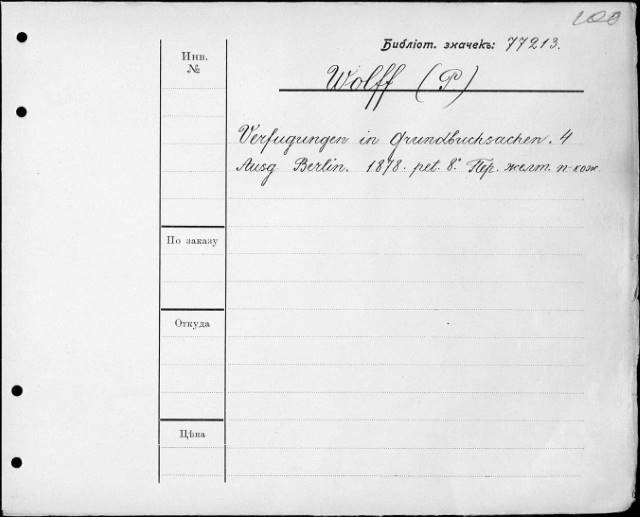 100
Библіот. значекъ: 77213.
Инв.
№
Wolff (P.)
Verfugungen in Grundbuchsachen. 4
Ausg Berlin. 1878. pet. 8.° Пер. желт. п-кож.
По заказу
Откуда
Цѣна